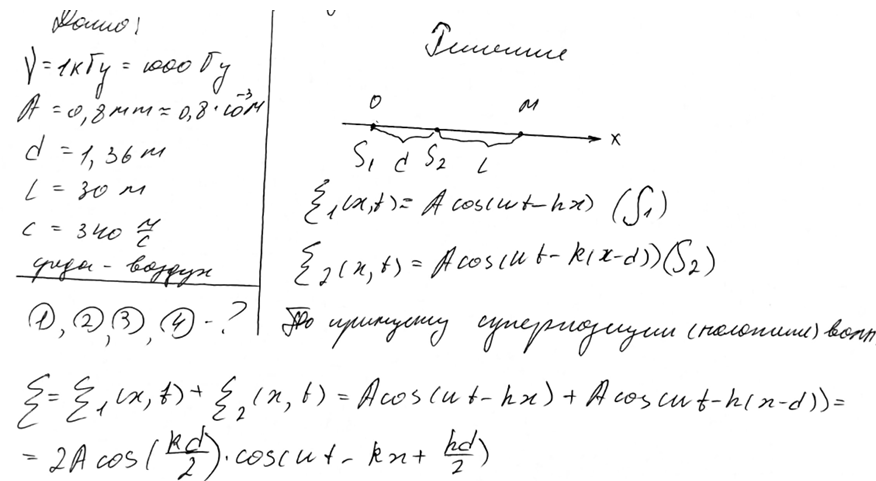 Дано:
ν = 1кГц = 1000 Гц
A = 0,8мм = 0,8·10⁻³м
d = 1,36 м
L = 30 м
c = 340 м/с
среда - воздух
①, ②, ③, ④ - ?
Решение
O M
x
S₁ d S₂ L
ξ₁(x,t) = A cos(ωt - kx) (S₁)
ξ₂(x,t) = A cos(ωt - k(x-d)) (S₂)
По принципу суперпозиции (наложения) волн
ξ = ξ₁(x,t) + ξ₂(x,t) = A cos(ωt - kx) + A cos(ωt - k(x-d)) =
= 2A cos(kd/2) · cos(ωt - kx + kd/2)